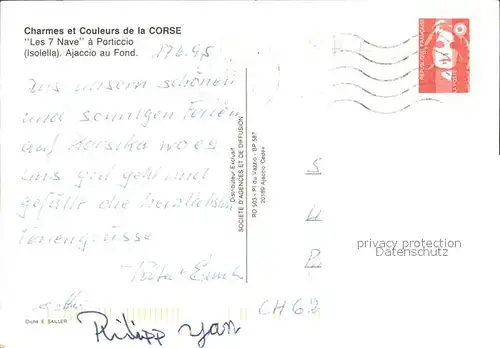 Charmes et Couleurs de la CORSE
"Les 7 Nave" à Porticcio
(Isolella). Ajaccio au Fond.
Aus unsern schönen
und sonnigen Ferien
auf Korsika wo es
uns gut geht und
gefällt die herzlichsten
Feriengrüsse
Philipp Jan
Cliché E. SAILLER
Distributeur Exclusif
SOCIETE D'AGENCES ET DE DIFFUSION
RD 503 - Pl du Vazzio - BP 587
20189 Ajaccio Cedex
REPUBLIQUE FRANÇAISE
LA POSTE
privacy protection
Datenschutz
CH 62